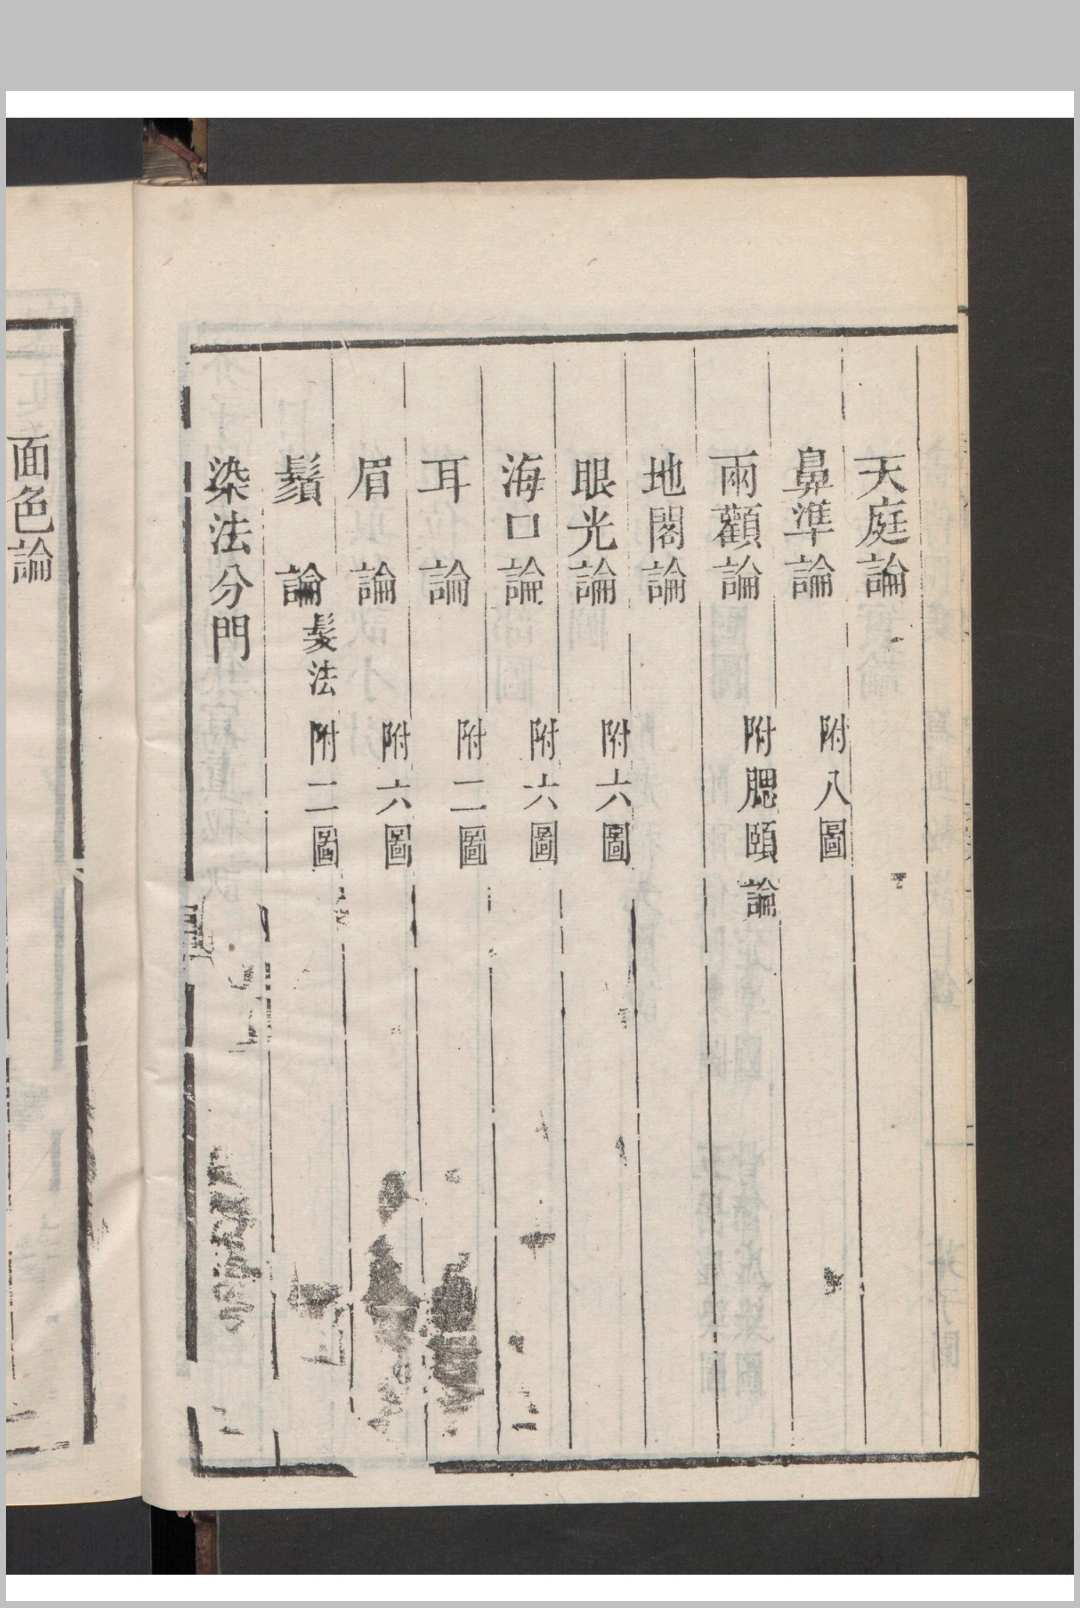 天庭論
鼻準論 附八圖
兩顴論 附腮頤論
地閣論
眼光論 附六圖
海口論 附六圖
耳論 附二圖
眉論 附六圖
鬚論 髮法 附二圖
染法分門
面色論